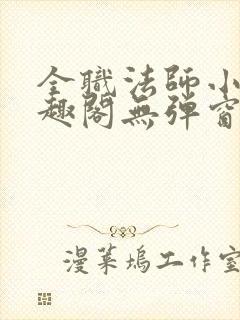 全職法師小
趣閣無彈窗
漫菓塢工作室